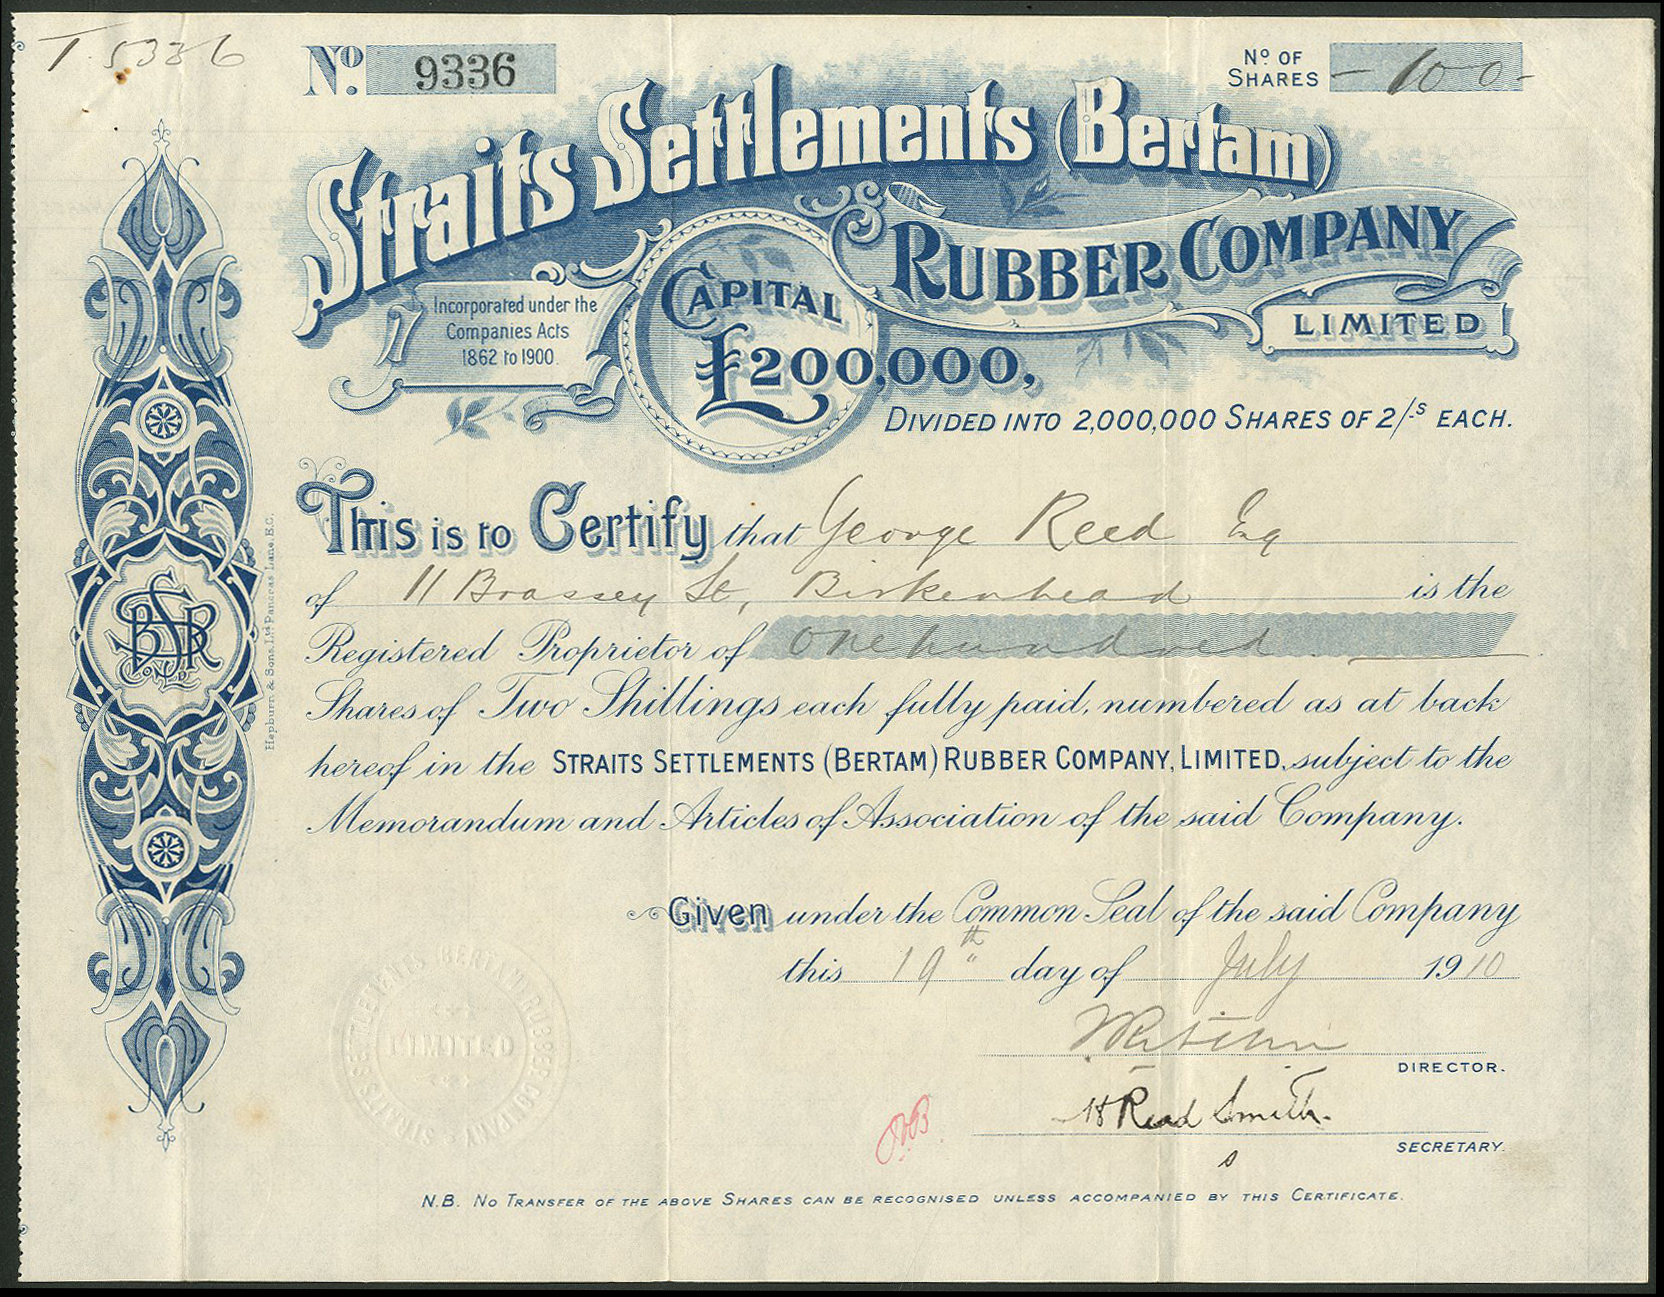 T. 5336
No. 9336
No OF SHARES - 100 -
Straits Settlements (Bertam)
RUBBER COMPANY
LIMITED
Incorporated under the
Companies Acts
1862 to 1900.
CAPITAL
£200,000,
DIVIDED INTO 2,000,000 SHARES OF 2/-s EACH.
This is to Certify that George Reed Esq
of 11 Brassey St, Birkenhead is the
Registered Proprietor of One hundred
Shares of Two Shillings each fully paid, numbered as at back
hereof in the STRAITS SETTLEMENTS (BERTAM) RUBBER COMPANY, LIMITED, subject to the
Memorandum and Articles of Association of the said Company.
Given under the Common Seal of the said Company
this 19th day of July 1910
DIRECTOR.
H Read Smith.
SECRETARY.
N.B. NO TRANSFER OF THE ABOVE SHARES CAN BE RECOGNISED UNLESS ACCOMPANIED BY THIS CERTIFICATE.
Hepburn & Sons, Ltd Pancras Lane, E.C.
SSBR
Co Ld
STRAITS SETTLEMENTS BERTAM RUBBER COMPANY
LIMITED